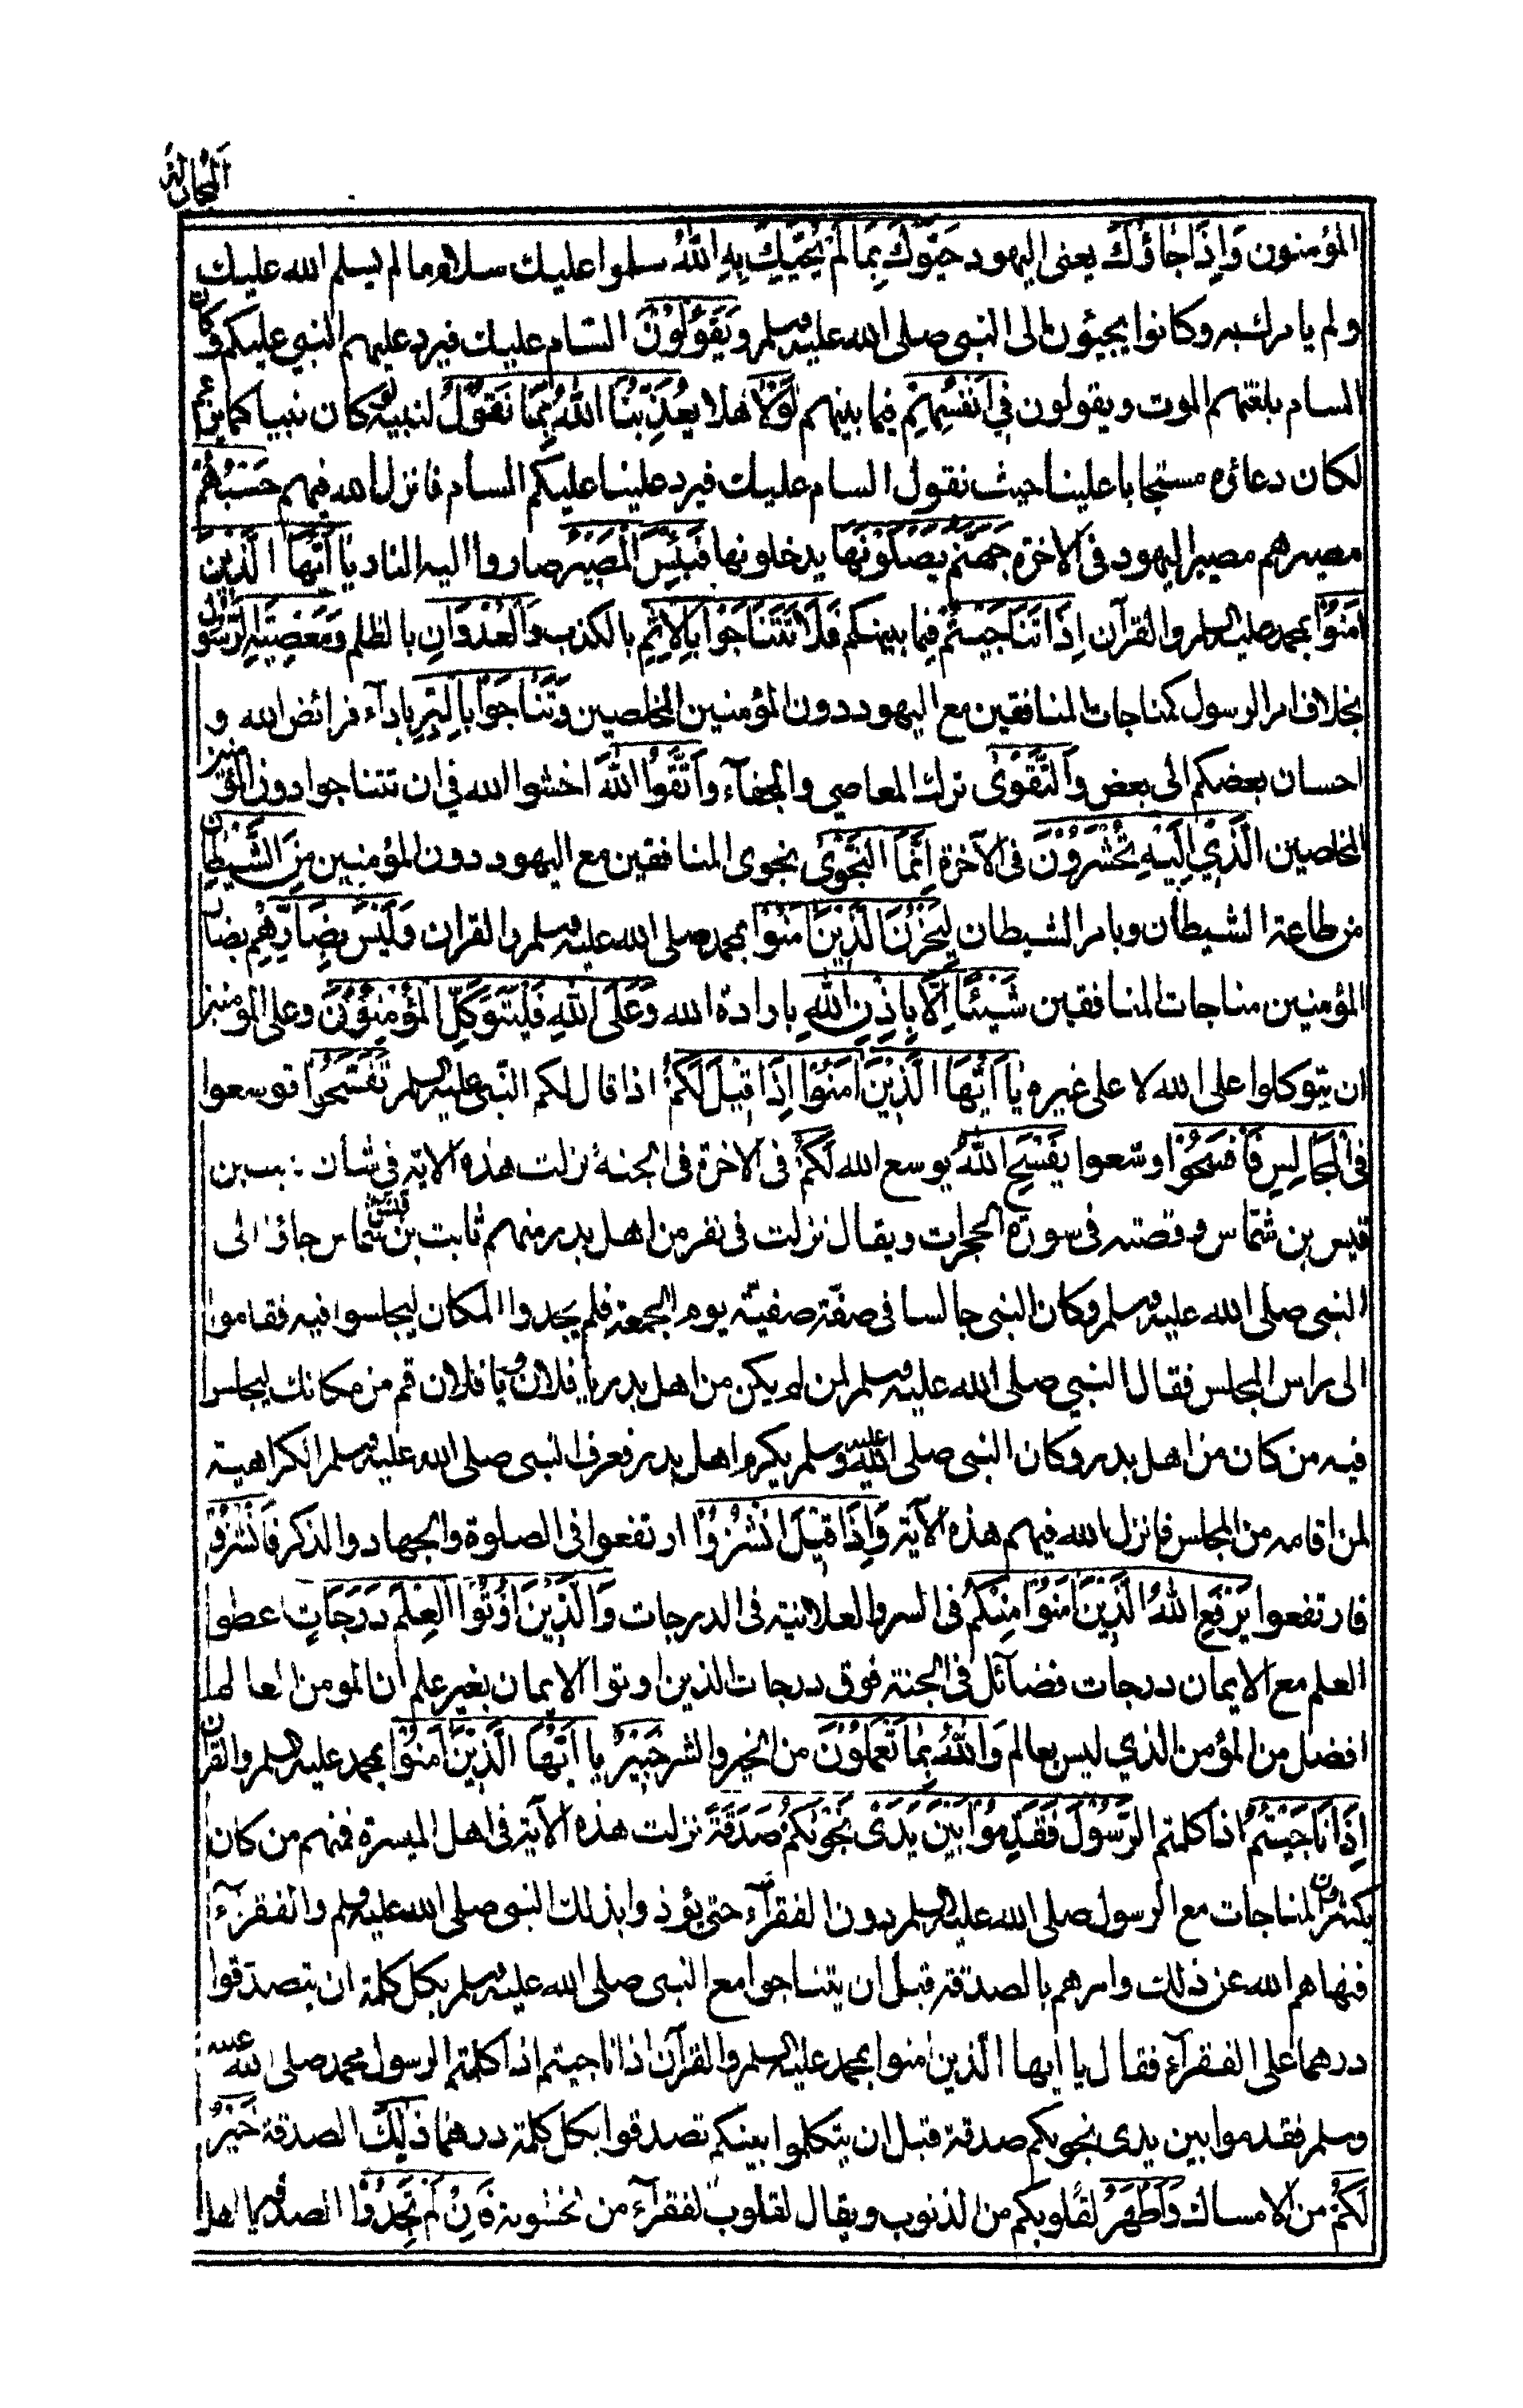 المجادلة
المؤمنون وَاِذَا جَاؤُكَ يعنى اليهود حَيَّوْكَ بِمَا لَمْ يُحَيِّكَ بِهِ اللهُ سلموا عليك سلاما مالم يسلم الله عليك
ولم يامرك به وكانوا يجيئون الى النبى صلى الله عليه وسلم وَيَقُوْلُوْنَ السّام عليك فيرد عليهم النبى عليكم وكان
السام بلغتهم الموت ويقولون فِي اَنْفُسِهِمْ فيما بينهم لَوْلَا هلا يُعَذِّبُنَا اللهُ بِمَا نَقُوْلُ لنبيه لو كان نبيا كما يزعم
لكان دعاؤه مستجابا علينا حيث نقول السام عليك فيرد علينا عليكم السام فانزل الله فيهم حَسْبُهُمْ
مصيرهم مصير اليهود فى الاخرة جَهَنَّمُ يَصْلَوْنَهَا يدخلونها فَبِئْسَ الْمَصِيْرُ صاروا اليه النار يَا اَيُّهَا الَّذِيْنَ
اٰمَنُوْا بمحمد صلى الله عليه وسلم والقرآن اِذَا تَنَاجَيْتُمْ فيما بينكم فَلَا تَتَنَاجَوْا بِالْاِثْمِ بالكذب وَالْعُدْوَانِ بالظلم وَمَعْصِيَتِ الرَّسُوْلِ
بخلاف امر الرسول كمناجات المنافقين مع اليهود دون المؤمنين المخلصين وَتَنَاجَوْا بِالْبِرِّ باداء فرائض الله و
احسان بعضكم الى بعض وَالتَّقْوٰى ترك المعاصى والجفاء وَاتَّقُوا اللهَ اخشوا الله فى ان تتناجوا دون المؤمنين
المخلصين الَّذِيْ اِلَيْهِ تُحْشَرُوْنَ فى الآخرة اِنَّمَا النَّجْوٰى نجوى المنافقين مع اليهود دون المؤمنين مِنَ الشَّيْطَانِ
من طاعة الشيطان وبامر الشيطان لِيَحْزُنَ الَّذِيْنَ اٰمَنُوْا بمحمد صلى الله عليه وسلم والقران وَلَيْسَ بِضَارِّهِمْ بضار
المؤمنين مناجات المنافقين شَيْئًا اِلَّا بِاِذْنِ اللهِ بارادة الله وَعَلَى اللهِ فَلْيَتَوَكَّلِ الْمُؤْمِنُوْنَ وعلى المؤمنين
ان يتوكلوا على الله لا على غيره يَا اَيُّهَا الَّذِيْنَ اٰمَنُوْا اِذَا قِيْلَ لَكُمْ اذا قال لكم النبى عليه السلم تَفَسَّحُوْا توسعوا
فِى الْمَجَالِسِ فَافْسَحُوْا اوسّعوا يَفْسَحِ اللهُ يوسع الله لَكُمْ فى الاخرة فى الجنة نزلت هذه الاية فى شان
قيس بن شمّاس وقصته فى سورة الحجرات ويقال نزلت فى نفر من اهل بدر منهم ثابت بن قيس بن شماس جاؤا الى
النبى صلى الله عليه وسلم وكان النبى جالسا فى صفّة صفيّة يوم الجمعة فلم يجدوا المكان ليجلسوا فيه فقاموا
الى راس المجلس فقال النبى صلى الله عليه وسلم لمن لم يكن من اهل بدر يا فلان ويا فلان قم من مكانك ليجلس
فيه من كان من اهل بدر وكان النبى صلى الله عليه وسلم يكرم اهل بدر فعرف النبى صلى الله عليه وسلم الكراهية
لمن اقامه من المجلس فانزل الله فيهم هذه الآية وَاِذَا قِيْلَ انْشُزُوْا ارتفعوا فى الصلوة والجهاد والذكر فَانْشُزُوْا
فارتفعوا يَرْفَعِ اللهُ الَّذِيْنَ اٰمَنُوْا مِنْكُمْ فى السر والعلانية فى الدرجات وَالَّذِيْنَ اُوْتُوا الْعِلْمَ دَرَجَاتٍ اعطوا
العلم مع الايمان درجات فضآئل فى الجنة فوق درجات الذين اوتوا الايمان بغير علم ان المومن العالم
افضل من المؤمن الذي ليس بعالم وَاللهُ بِمَا تَعْمَلُوْنَ من الخير والشر خَبِيْرٌ يا اَيُّهَا الَّذِيْنَ اٰمَنُوْا بمحمد عليه السلم والقرآن
اِذَا نَاجَيْتُمُ اذا كلمتم الرَّسُوْلَ فَقَدِّمُوْا بَيْنَ يَدَىْ نَجْوٰىكُمْ صَدَقَةً نزلت هذه الآية فى اهل الميسرة فمنهم من كان
يكثرون المناجات مع الرسول صلى الله عليه وسلم دون الفقرآء حتى يؤذوا بذلك النبى صلى الله عليه وسلم والفقرآء
فنهاهم الله عن ذلك وامرهم بالصدقة قبل ان يتناجوا مع النبى صلى الله عليه وسلم بكل كلمة ان يتصدقوا
درهما على الفقرآء فقال يا ايها الّذين اٰمنوا بمحمد عليه السلم والقرآن اذا ناجيتم اذا كلمتم الرسول محمد صلى الله عليه
وسلم فقدموا بين يدى نجويكم صدقة قبل ان يتكلموا بينكم تصدقوا بكل كلمة درهما ذٰلِكَ الصدقة خَيْرٌ
لَكُمْ من الامساك وَاَطْهَرُ لقلوبكم من الذنوب ويقال لقلوب الفقرآء من الخشونة فَاِنْ لَمْ تَجِدُوْا الصدقة يا اهل